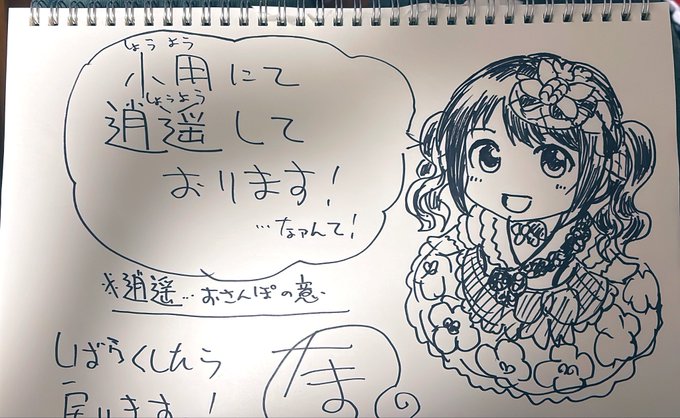 しょうよう
小用にて
しょうよう
逍遥して
おります!
…なァんて!
※逍遥…おさんぽの意
しばらくしたら
戻ります!
たま